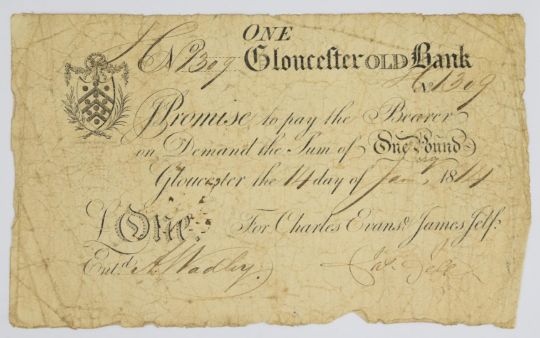 ONE
No 1309 Gloucester OLD Bank
No 1309
I Promise to pay the Bearer
on Demand the Sum of One Pound
Gloucester the 14 day of Jany 1814
£ One. For Charles Evans & James Jelf.
Entd A. Wadley. Jas. Jelf